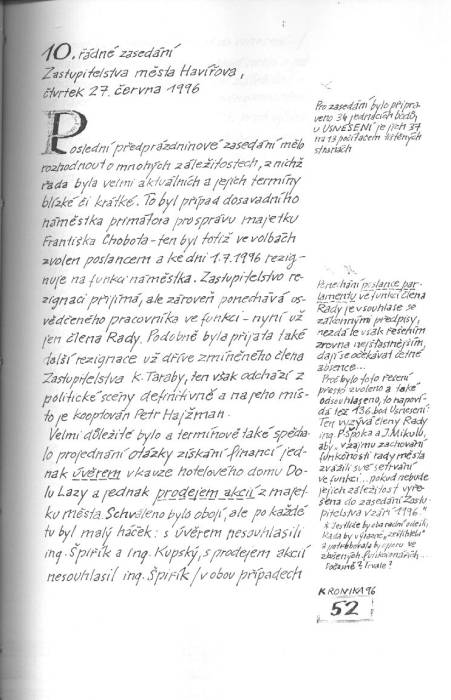 10. řádné zasedání
Zastupitelstva města Havířova,
čtvrtek 27. června 1996
Poslední předprázdninové zasedání mělo
rozhodnout o mnohých záležitostech, z nichž
řada byla velmi aktuálních a jejich termíny
blízké či krátké. To byl případ dosavadního
náměstka primátora pro správu majetku
Františka Chobota - ten byl totiž ve volbách
zvolen poslancem a ke dni 1.7.1996 rezig-
nuje na funkci náměstka. Zastupitelstvo re-
zignaci přijímá, ale zároveň ponechává os-
vědčeného pracovníka ve funkci - nyní už
jen člena Rady. Podobně byla přijata také
další rezignace už dříve zmíněného člena
Zastupitelstva K. Taraby, ten však odchází z
politické scény definitivně a na jeho mís-
to je kooptován Petr Hajžman.
Velmi důležité bylo a termínově také spěcha-
lo projednání otázky získání financí jed-
nak úvěrem v kauze hotelového domu Do-
lu Lazy a jednak prodejem akcií z majet-
ku města. Schváleno bylo obojí, ale po každé
tu byl malý háček: s úvěrem nesouhlasili
ing. Špiřík a ing. Kupský, s prodejem akcií
nesouhlasil ing. Špiřík / v obou případech
Pro zasedání bylo připra-
veno 34 jednacích bodů,
u USNESENÍ je jich 37
na 13 počítačem tištěných
stranách
Ponechání poslance par-
lamentu ve funkci člena
Rady je v souhlase se
zákonnými předpisy,
nezdá se však řešením
zrovna nejšťastnějším,
dají se očekávat četné
absence...
Proč bylo toto řešení
přesto zvoleno a také
odsouhlaseno, to napoví-
dá též 136. bod Usnesení:
Ten vyzývá členy Rady
ing. P. Špoka a J. Mikulu,
aby "v zájmu zachování
funkčnosti rady města
zvážili své setrvání
ve funkci... pokud nebude
jejich záležitost vyře-
šena do zasedání Zastu-
pitelstva v září 1996."
by oba radní odešli,
Rada by výrazně "zeštíhlela"
a potřebovala by oporu ve
zkušených funkcionářích...
Dočasně? Trvale?
KRONIKA 96
52